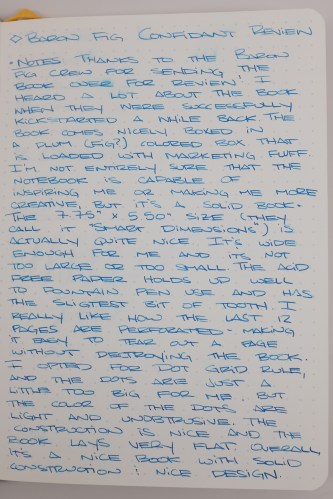 ◇ Baron Fig Confidant Review
• Notes: Thanks to the Baron
Fig crew for sending the
book over for review. I
heard a lot about the book
when they were successfully
Kickstarted a while back. The
book comes nicely boxed in
a plum (fig?) colored box that
is loaded with marketing fluff.
I'm not entirely sure that the
notebook is capable of
inspiring me or making me more
creative, but it's a solid book.
The 7.75" x 5.50" size (they
call it "smart dimensions") is
actually quite nice. It's wide
enough for me and its not
too large or too small. The acid
free paper holds up well
to fountain pen use and has
the sligtest bit of tooth. I
really like how the last 12
pages are perforated - making
it easy to tear out a page
without destroying the book.
I opted for dot grid rule,
and the dots are just a
little too big for me. But
the color of the dots are
light and unobtrusive. The
construction is nice and the
book lays very flat. Overall
it's a nice book with solid
construction & nice design.